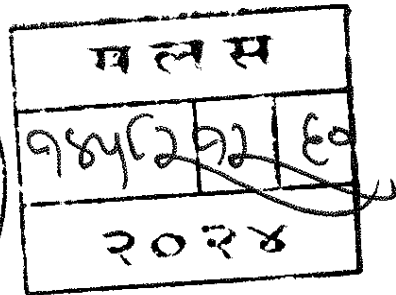 म ल स
१४५८२ १२ ६०
२०२४